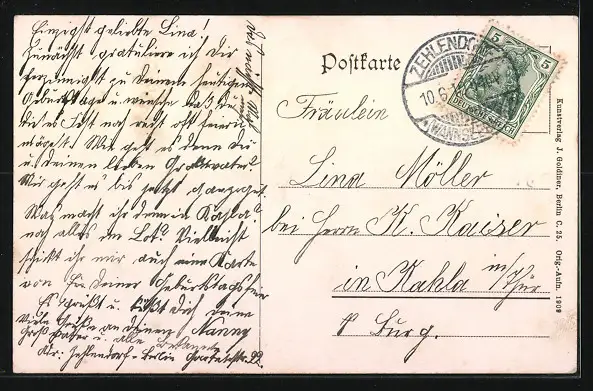 Einzigst geliebte Lina!
Zunächst gratuliere ich Dir
herzinnigst zu Deinem heutigen
Geburtstage u. wünsche daß Du
dieses Fest noch recht oft feiern
mögest. Wie geht es denn Dir
u. deinem lieben Großvater?
Mir geht es bis jetzt
Was macht ihr denn in Kahla?
noch alles im Lot? Vielleicht
schickt ihr mir auch eine Karte
von Deiner Geburtstagsfeier
Es grüßt u. küßt Dich deine
viele Grüße an deinen Nanny
Großvater u. alle Bekannte
Adr. Zehlendorf-Berlin Gartenstr. 22.
Postkarte
ZEHLENDORF
10.6.
(WANNSEEB.)
5 5
DEUTSCHES REICH
Fräulein
Lina Möller
bei Herrn K. Kaiser
in Kahla i/Thür
Burg.
Kunstverlag J. Goldiner, Berlin C. 25. Orig.-Aufn. 1909